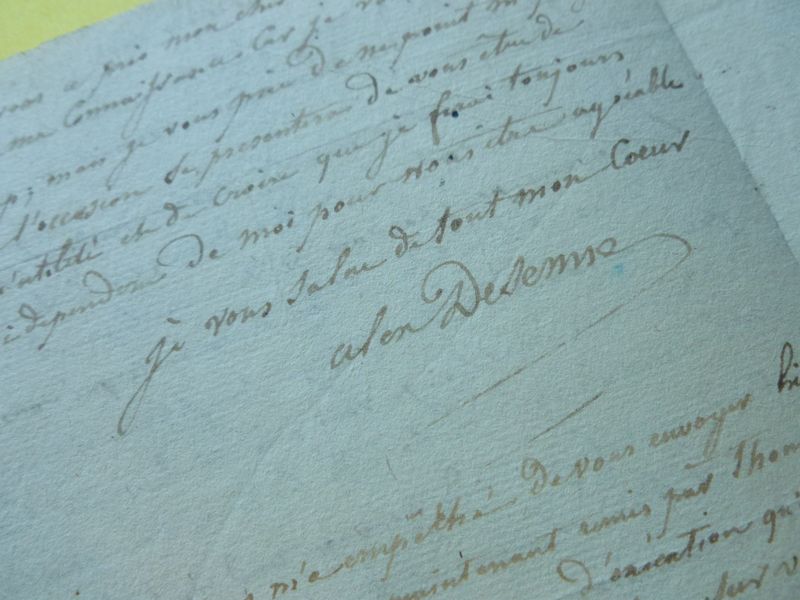 a pris mon cher
ma Connaissance Car je vo
mais je vous prie de ne point m
l'occasion se presentera de vous être de
l'utilité et de croire que je ferai toujours
dependra de moi pour vous être agréable
je vous salue de tout mon Coeur
alex Desenne
m'a empêché de vous envoyer
maintenant remis par Thom
d'exécution qu'
sur v